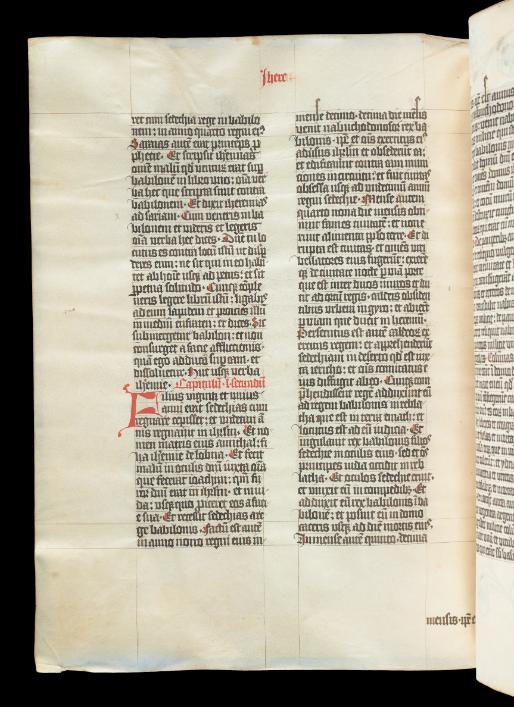 Ihere
ret cum sedechia rege in babilo
nem: in anno quarto regni eius
Saraias autē erat princeps p
phetie. Et scripsit iheremias
omē malū qd venturū erat sup
babilonē in libro uno: oīa ver
ba hec que scripta sunt contra
babilonem. Et dixit iheremias
ad sariam. Cum veneris in ba
bilonem et videris et legeris
oīa verba hec dices. Dn̄e tu lo
cutus es contra locū istū ut disp
deres eum: ne sit qui in eo habi
ret ab hoīe usq ad pecus: et sit
ppetua solitudo. Cumq cōple
ueris legere librū istū: ligabis
ad eum lapidem et proicies illū
in mediū eufraten: et dices. Sic
submergetur babilon: et non
consurget a facie afflictionis:
quā ego adduco sup eam. et
dissoluetur. Huc usq verba
iheremie. Capitulū l secundū
Filius viginti et unius
anni erat sedechias cum
regnare cepisset: et undecim ā
nis regnauit in ihrlm. Et no
men matris eius amithal: fi
lia iheremie de lobna. Et fecit
malū in oculis dn̄i iuxta oīa
que fecerat ioachim: qm̄ fu
ror dn̄i erat in ihrlm. et in iu
da: usq quo proicet eos a faci
e sua. Et recessit sedechias a re
ge babilonis. Factū est autē
in anno nono regni eius in
mense decimo. decima die mēsis
venit nabuchodonosor rex ba
bilonis. ipē et oīs exercitus eius
aduersus ihrlm et obsederūt eā:
et edificauerūt contra eam muni
tiones in circuitu: et fuit ciuitas
obsessa usq ad undecimū annū
regni sedechie. Mense autem
quarto nona die mensis obti
nuit fames ciuitatē: et non e
rant alimenta pplo terre. Et di
rupta est ciuitas. et omēs viri
bellatores eius fugerūt: exierūt
q de ciuitate nocte p viā porte
que est inter duos muros et du
cit ad ortū regis. caldeis obsiden
tibus urbem in gyro: et abierūt
p viam que ducit in heremū.
Persecutus est autē caldeorum ex
ercitus regem: et apprehenderūt
sedechiam in deserto qd est iux
ta iericho: et oīs comitatus ei
us diffugit ab eo. Cumq com
prehendissent regē adduxerūt eū
ad regem babilonis in rebla
tha que est in terra emath: et
locutus est ad eū iudicia. Et
iugulauit rex babilonis filios
sedechie in oculis eius. sed et oēs
principes iuda occidit in reb
latha. Et oculos sedechie eruit.
et vinxit eū in compedibus. Et
adduxit eū rex babilonis ī ba
bilonē: et posuit eū in domo
carceris usq ad diē mortis eius.
In mense autē quinto. decima
mensis. ipē e